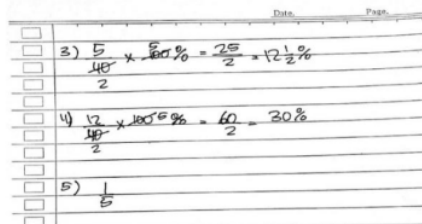 Date. Page.
3) 5/40 2 × 100 5 % = 25/2 = 12 1/2 %
4) 12/40 2 × 100 5 % = 60/2 = 30%
5) 1/5